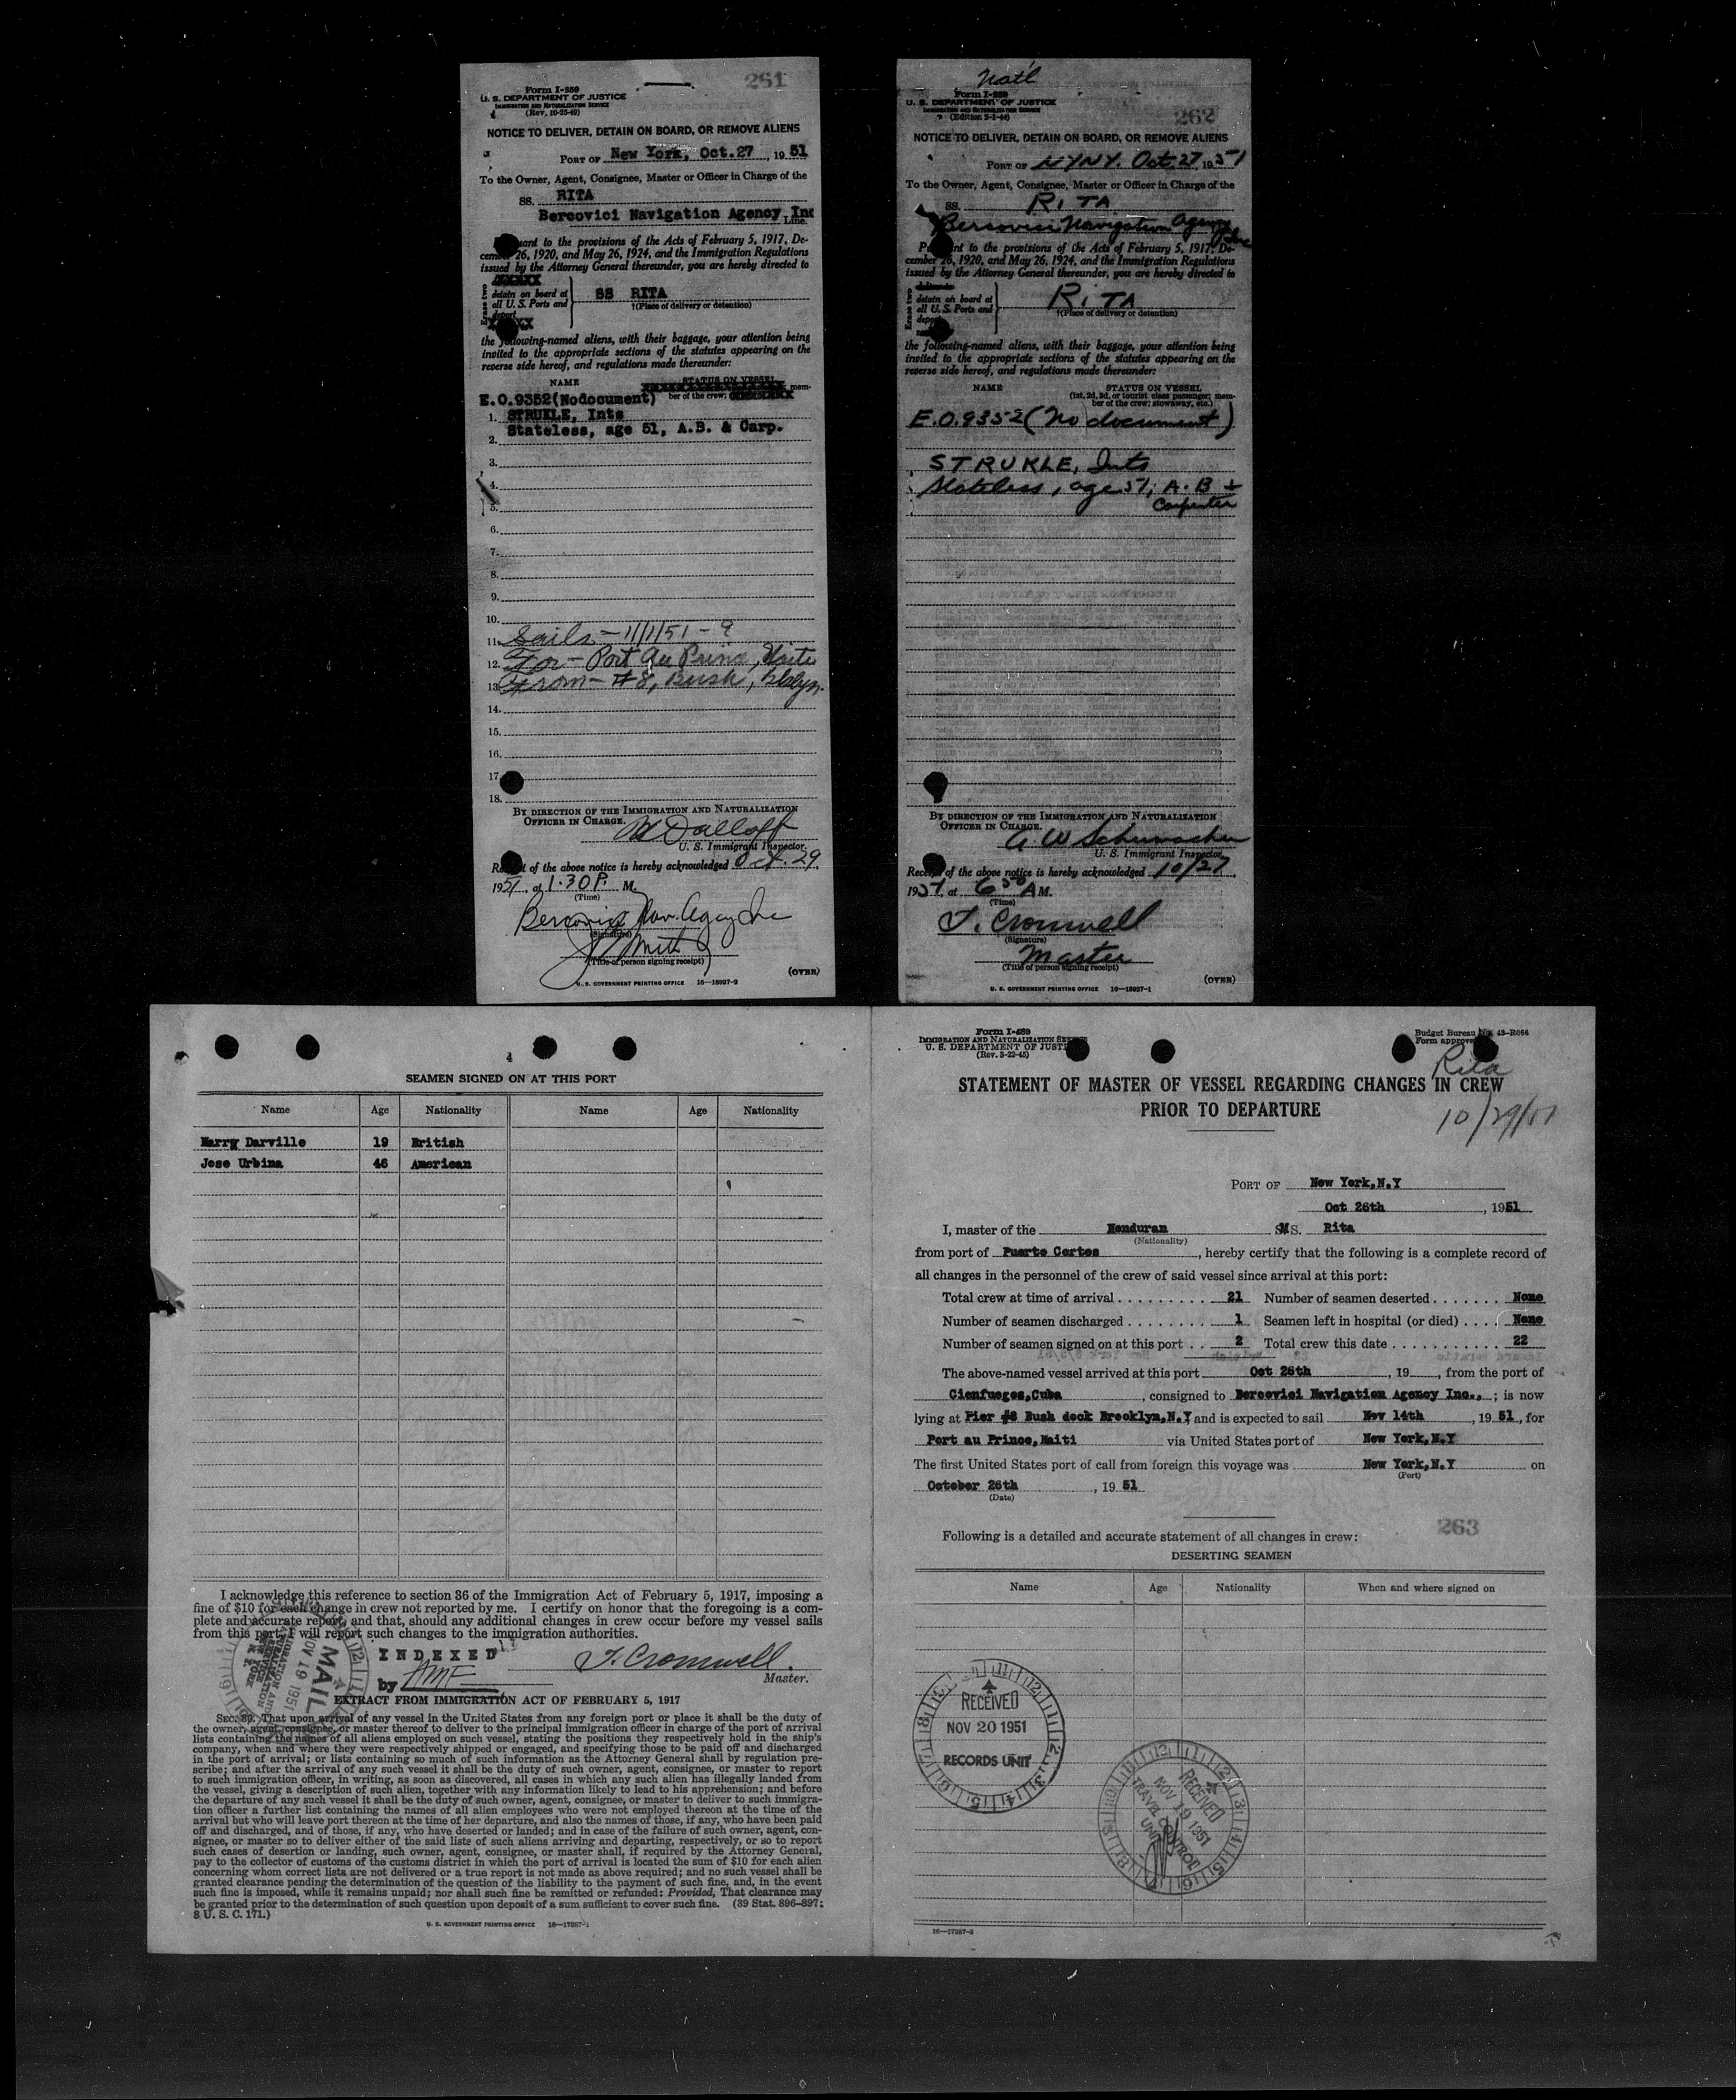 261
Form I-259
U. S. DEPARTMENT OF JUSTICE
IMMIGRATION AND NATURALIZATION SERVICE
(Rev. 10-25-49)
NOTICE TO DELIVER, DETAIN ON BOARD, OR REMOVE ALIENS
PORT OF New York, Oct.27, 1951
To the Owner, Agent, Consignee, Master or Officer in Charge of the
SS. RITA
Bercovici Navigation Agency Inc
Line.
uant to the provisions of the Acts of February 5, 1917, De-
cember 26, 1920, and May 26, 1924, and the Immigration Regulations
issued by the Attorney General thereunder, you are hereby directed to
detain on board at
all U. S. Ports and
deport
SS RITA
†(Place of delivery or detention)
the following-named aliens, with their baggage, your attention being
invited to the appropriate sections of the statutes appearing on the
reverse side hereof, and regulations made thereunder:
NAME STATUS ON VESSEL
mem-
ber of the crew;
E.O.9352(Nodocument)
1. STRUKLE, Ints
2. Stateless, age 51, A.B. & Carp.
3.
4.
5.
6.
7.
8.
9.
10.
11. Sails - 11/1/51 - 9
12. For - Port Au Prince, Haiti
13. From - #8, Bush, Bklyn.
14.
15.
16.
17.
18.
BY DIRECTION OF THE IMMIGRATION AND NATURALIZATION
OFFICER IN CHARGE.
U. S. Immigrant Inspector.
of the above notice is hereby acknowledged Oct. 29,
1951, at 1:30 P. M.
(Time)
Bercovici Nav. Agcy Inc
(Signature)
(Title of person signing receipt)
(OVER)
U. S. GOVERNMENT PRINTING OFFICE 16—18927-2
Natl
Form I-259
U. S. DEPARTMENT OF JUSTICE
IMMIGRATION AND NATURALIZATION SERVICE
(Edition 2-1-44)
262
NOTICE TO DELIVER, DETAIN ON BOARD, OR REMOVE ALIENS
PORT OF NYNY. Oct. 27, 1951
To the Owner, Agent, Consignee, Master or Officer in Charge of the
SS. RITA
Bercovici Navigation Agency Inc
nt to the provisions of the Acts of February 5, 1917, De-
cember 26, 1920, and May 26, 1924, and the Immigration Regulations
issued by the Attorney General thereunder, you are hereby directed to
Erase two
detain on board at
all U. S. Ports and
deport
RITA
†(Place of delivery or detention)
the following-named aliens, with their baggage, your attention being
invited to the appropriate sections of the statutes appearing on the
reverse side hereof, and regulations made thereunder:
NAME STATUS ON VESSEL
(1st, 2d, 3d, or tourist class passenger; mem-
ber of the crew; stowaway, etc.)
E.O. 9352 (No document)
STRUKLE, Ints
Stateless, age 51, A.B +
Carpenter
BY DIRECTION OF THE IMMIGRATION AND NATURALIZATION
OFFICER IN CHARGE.
G. W Schumacher
U. S. Immigrant Inspector.
of the above notice is hereby acknowledged 10/27,
1951, at 6 30 A M.
(Time)
J. Cromwell
(Signature)
Master
(Title of person signing receipt)
(OVER)
U. S. GOVERNMENT PRINTING OFFICE 16—18927-1
4
SEAMEN SIGNED ON AT THIS PORT
Name Age Nationality Name Age Nationality
Harry Darville 19 British
Jose Urbina 46 American
I acknowledge this reference to section 36 of the Immigration Act of February 5, 1917, imposing a
fine of $10 for each change in crew not reported by me. I certify on honor that the foregoing is a com-
plete and accurate report, and that, should any additional changes in crew occur before my vessel sails
from this port, I will report such changes to the immigration authorities.
INDEXED
J. Cromwell.
Master.
by AMF
MAILED
NOV 19 1951
EXTRACT FROM IMMIGRATION ACT OF FEBRUARY 5, 1917
SEC. 36. That upon arrival of any vessel in the United States from any foreign port or place it shall be the duty of
the owner, agent, consignee, or master thereof to deliver to the principal immigration officer in charge of the port of arrival
lists containing the names of all aliens employed on such vessel, stating the positions they respectively hold in the ship's
company, when and where they were respectively shipped or engaged, and specifying those to be paid off and discharged
in the port of arrival; or lists containing so much of such information as the Attorney General shall by regulation pre-
scribe; and after the arrival of any such vessel it shall be the duty of such owner, agent, consignee, or master to report
to such immigration officer, in writing, as soon as discovered, all cases in which any such alien has illegally landed from
the vessel, giving a description of such alien, together with any information likely to lead to his apprehension; and before
the departure of any such vessel it shall be the duty of such owner, agent, consignee, or master to deliver to such immigra-
tion officer a further list containing the names of all alien employees who were not employed thereon at the time of the
arrival but who will leave port thereon at the time of her departure, and also the names of those, if any, who have been paid
off and discharged, and of those, if any, who have deserted or landed; and in case of the failure of such owner, agent, con-
signee, or master so to deliver either of the said lists of such aliens arriving and departing, respectively, or so to report
such cases of desertion or landing, such owner, agent, consignee, or master shall, if required by the Attorney General,
pay to the collector of customs of the customs district in which the port of arrival is located the sum of $10 for each alien
concerning whom correct lists are not delivered or a true report is not made as above required; and no such vessel shall be
granted clearance pending the determination of the question of the liability to the payment of such fine, and, in the event
such fine is imposed, while it remains unpaid; nor shall such fine be remitted or refunded: Provided, That clearance may
be granted prior to the determination of such question upon deposit of a sum sufficient to cover such fine. (39 Stat. 896-897;
8 U. S. C. 171.)
U. S. GOVERNMENT PRINTING OFFICE 16—17287-1
Form I-489
IMMIGRATION AND NATURALIZATION SERVICE
U. S. DEPARTMENT OF JUSTI
(Rev. 3-22-45)
Budget Bureau No. 43-R066
Form approve
Rita
STATEMENT OF MASTER OF VESSEL REGARDING CHANGES IN CREW
PRIOR TO DEPARTURE
10/29/51
PORT OF New York,N.Y
Oct 26th, 1951
I, master of the Honduran MS. Rita
(Nationality)
from port of Puerto Cortes, hereby certify that the following is a complete record of
all changes in the personnel of the crew of said vessel since arrival at this port:
Total crew at time of arrival 21 Number of seamen deserted None
Number of seamen discharged 1 Seamen left in hospital (or died) None
Number of seamen signed on at this port 2 Total crew this date 22
The above-named vessel arrived at this port Oct 26th, 19, from the port of
Cienfuegos,Cuba, consigned to Bercovici Navigation Agency Inc.,; is now
lying at Pier #8 Bush dock Brooklyn,N.Y and is expected to sail Nov 14th, 1951, for
Port au Prince,Haiti via United States port of New York,N.Y
The first United States port of call from foreign this voyage was New York,N.Y on
(Port)
October 26th, 1951
(Date)
263
Following is a detailed and accurate statement of all changes in crew:
DESERTING SEAMEN
Name Age Nationality When and where signed on
RECEIVED
NOV 20 1951
RECORDS UNIT
RECEIVED
NOV 19 1951
TRAVEL CONTROL
UNIT
16—17287-2